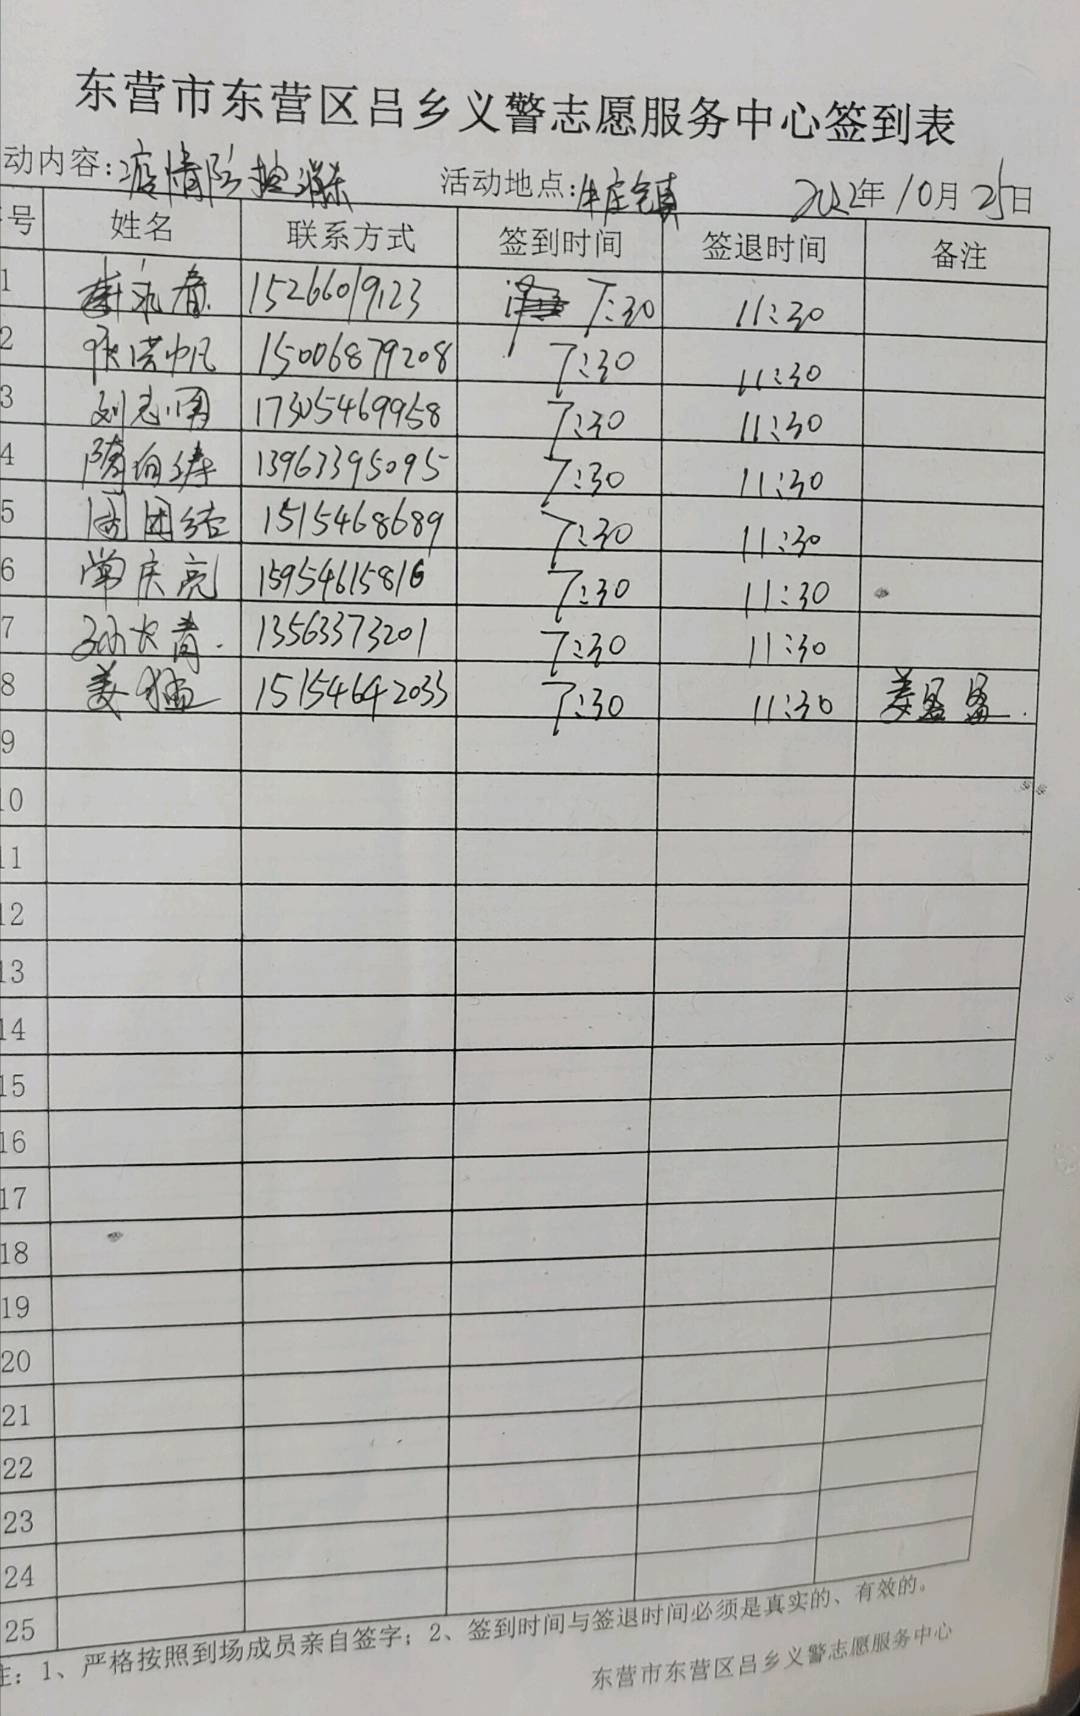 东营市东营区吕乡义警志愿服务中心签到表
动内容:疫情防控消杀 活动地点:牛庄镇 2022年10月25日
号 姓名 联系方式 签到时间 签退时间 备注
1 永春 15266019123 7:30 11:30
2 张洪帆 15006879208 7:30 11:30
3 刘志国 17305469958 7:30 11:30
4 隋向涛 13963395095 7:30 11:30
5 周团结 1515468689 7:30 11:30
6 常庆亮 15954615816 7:30 11:30
7 孙长青 13563373201 7:30 11:30
8 姜猛 15154642033 7:30 11:30 姜
9
10
11
12
13
14
15
16
17
18
19
20
21
22
23
24
25
注：1、严格按照到场成员亲自签字；2、签到时间与签退时间必须是真实的、有效的。
东营市东营区吕乡义警志愿服务中心